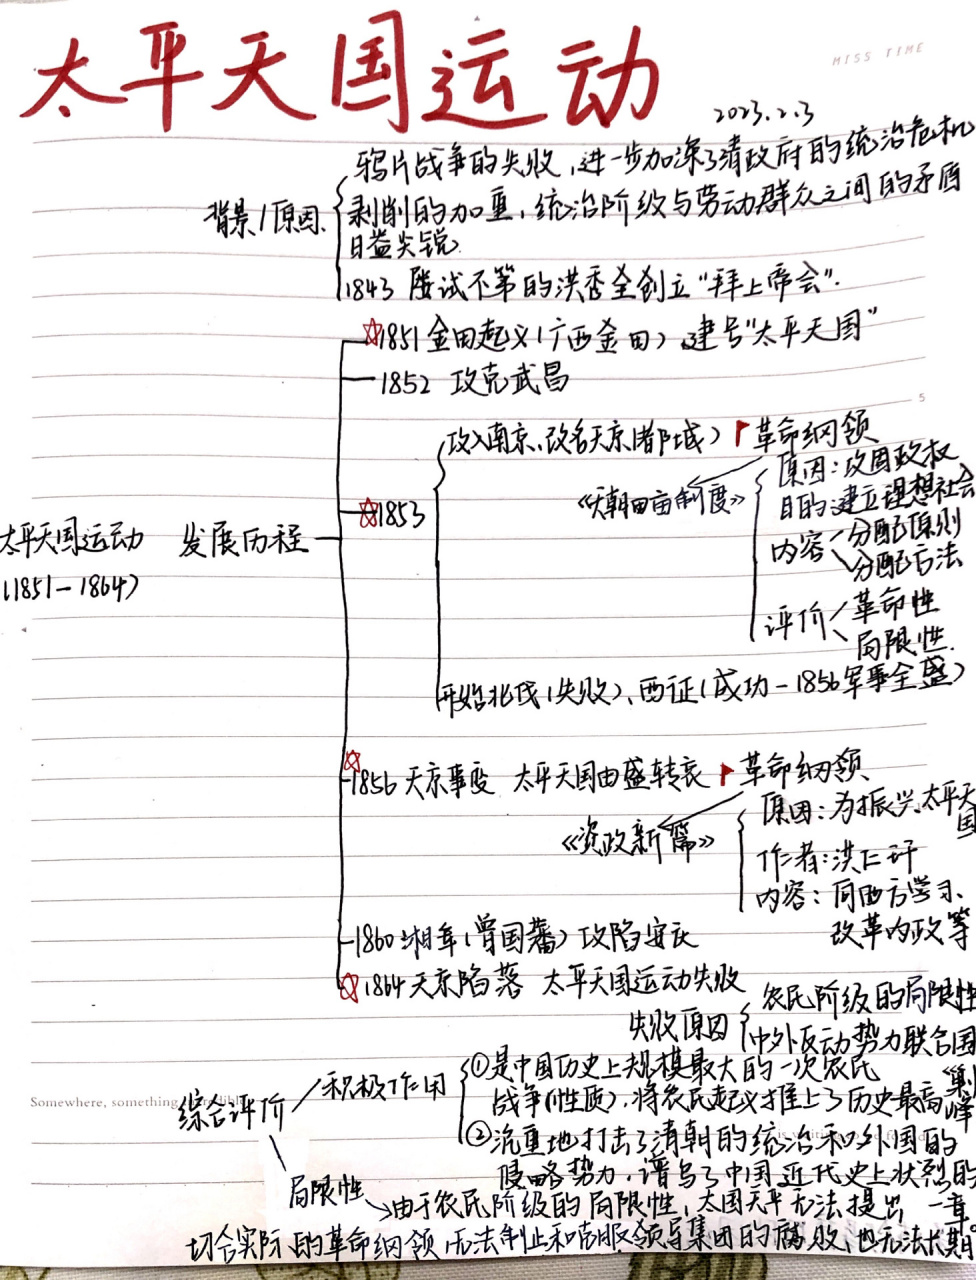 太平天国运动
MISS TIME
2023.2.3
背景/原因
鸦片战争的失败,进一步加深了清政府的统治危机
剥削的加重,统治阶级与劳动群众之间的矛盾
日益尖锐.
1843 屡试不第的洪秀全创立“拜上帝会”.
太平天国运动
(1851-1864)
发展历程
1851 金田起义(广西金田)、建号“太平天国”
1852 攻克武昌
5
1853
攻入南京、改名天京(都城)
革命纲领
《天朝田亩制度》
原因:巩固政权
目的:建立理想社会
内容
分配原则
分配方法
评价
革命性
局限性.
开始北伐(失败)、西征(成功-1856军事全盛)
1856 天京事变 太平天国由盛转衰
革命纲领
《资政新篇》
原因:为振兴太平天
国
作者:洪仁玕
内容:向西方学习、
改革内政等
1860 湘军(曾国藩)攻陷安庆
1864 天京陷落 太平天国运动失败
失败原因
农民阶级的局限性
中外反动势力联合围
剿
综合评价
积极作用
①是中国历史上规模最大的一次农民
战争(性质),将农民起义推上了历史最高峰
②沉重地打击了清朝的统治和外国的
侵略势力,谱写了中国近代史上壮烈的
一章。
Somewhere, something
局限性
由于农民阶级的局限性,太国天平无法提出
切合实际的革命纲领,无法制止和克服领导集团的腐败,也无法长期